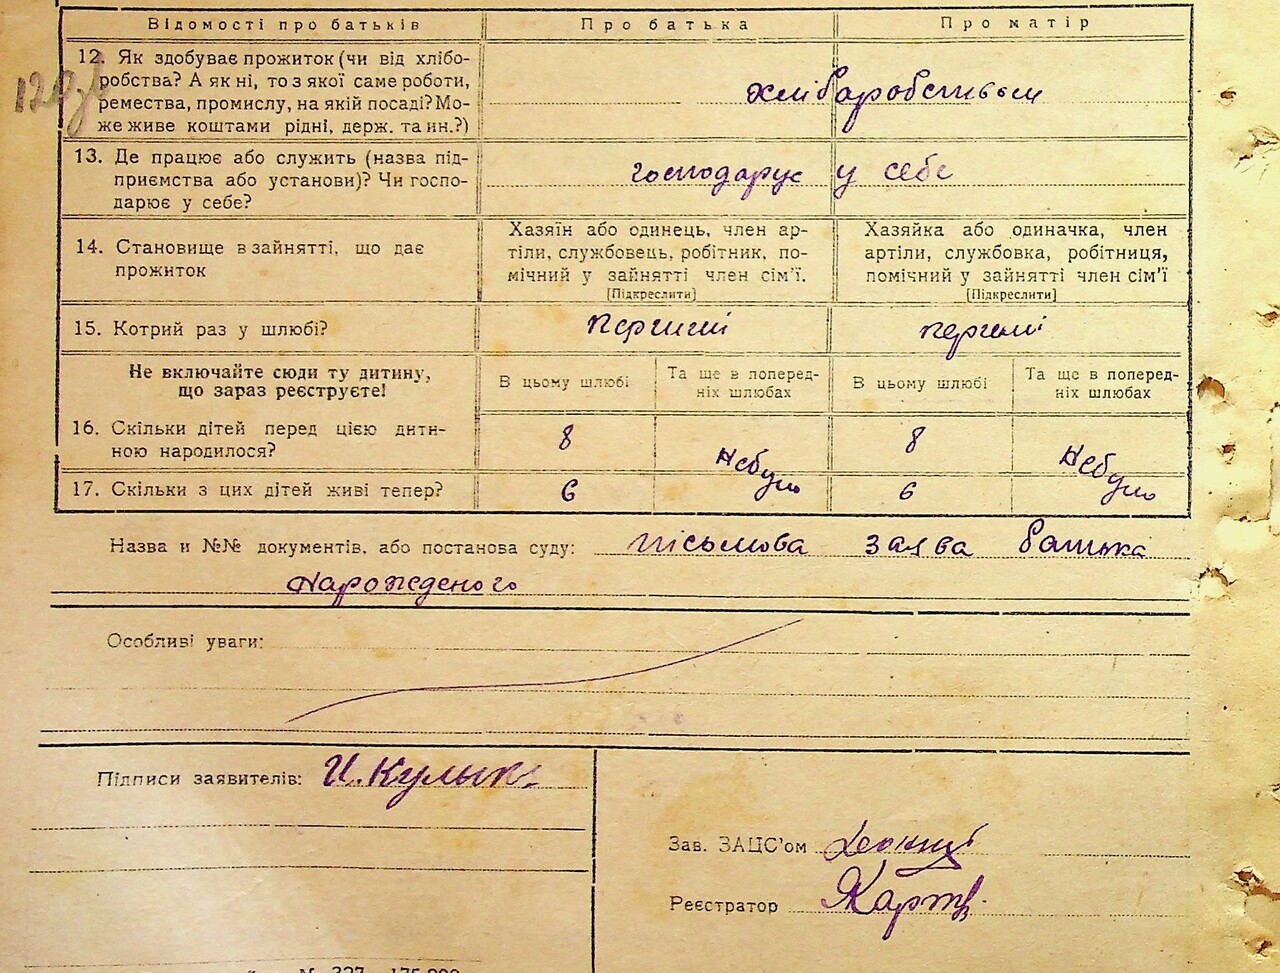 Відомості про батьків Про батька Про матір
12. Як здобуває прожиток (чи від хлібо-
робства? А як ні, то з якої саме роботи,
ремества, промислу, на якій посаді? Мо-
же живе коштами рідні, держ. та ин.?)
хлібаробством
13. Де працює або служить (назва під-
приємства або установи)? Чи госпо-
дарює у себе?
господарує у себе
14. Становище в зайнятті, що дає
прожиток
Хазяїн або одинець, член ар-
тіли, службовець, робітник, по-
мічний у зайнятті член сім'ї.
[Підкреслити]
Хазяйка або одиначка, член
артіли, службовка, робітниця,
помічний у зайнятті член сім'ї
[Підкреслити]
15. Котрий раз у шлюбі? перший перший
Не включайте сюди ту дитину,
що зараз реєструєте!
В цьому шлюбі
Та ще в поперед-
ніх шлюбах
В цьому шлюбі
Та ще в поперед-
ніх шлюбах
16. Скільки дітей перед цією дити-
ною народилося?
8 Небуло 8 Небуло
17. Скільки з цих дітей живі тепер? 6 6
Назва и №№ документів, або постанова суду: пісьмова заява батька
нарожденого
Особливі уваги:
Підписи заявителів: И. Кулык
Зав. ЗАЦС'ом
Реєстратор
№ 327 175.000